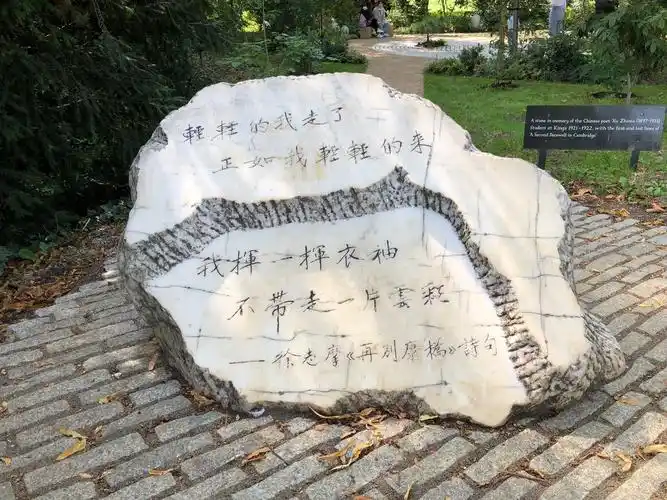 輕輕的我走了
正如我輕輕的來
我揮一揮衣袖
不带走一片雲彩
—徐志摩《再別康橋》詩句
A stone in memory of the Chinese poet Xu Zhimo (1897-1931)
Student at King's 1921-1922, with the first and last lines of
'A Second Farewell to Cambridge'